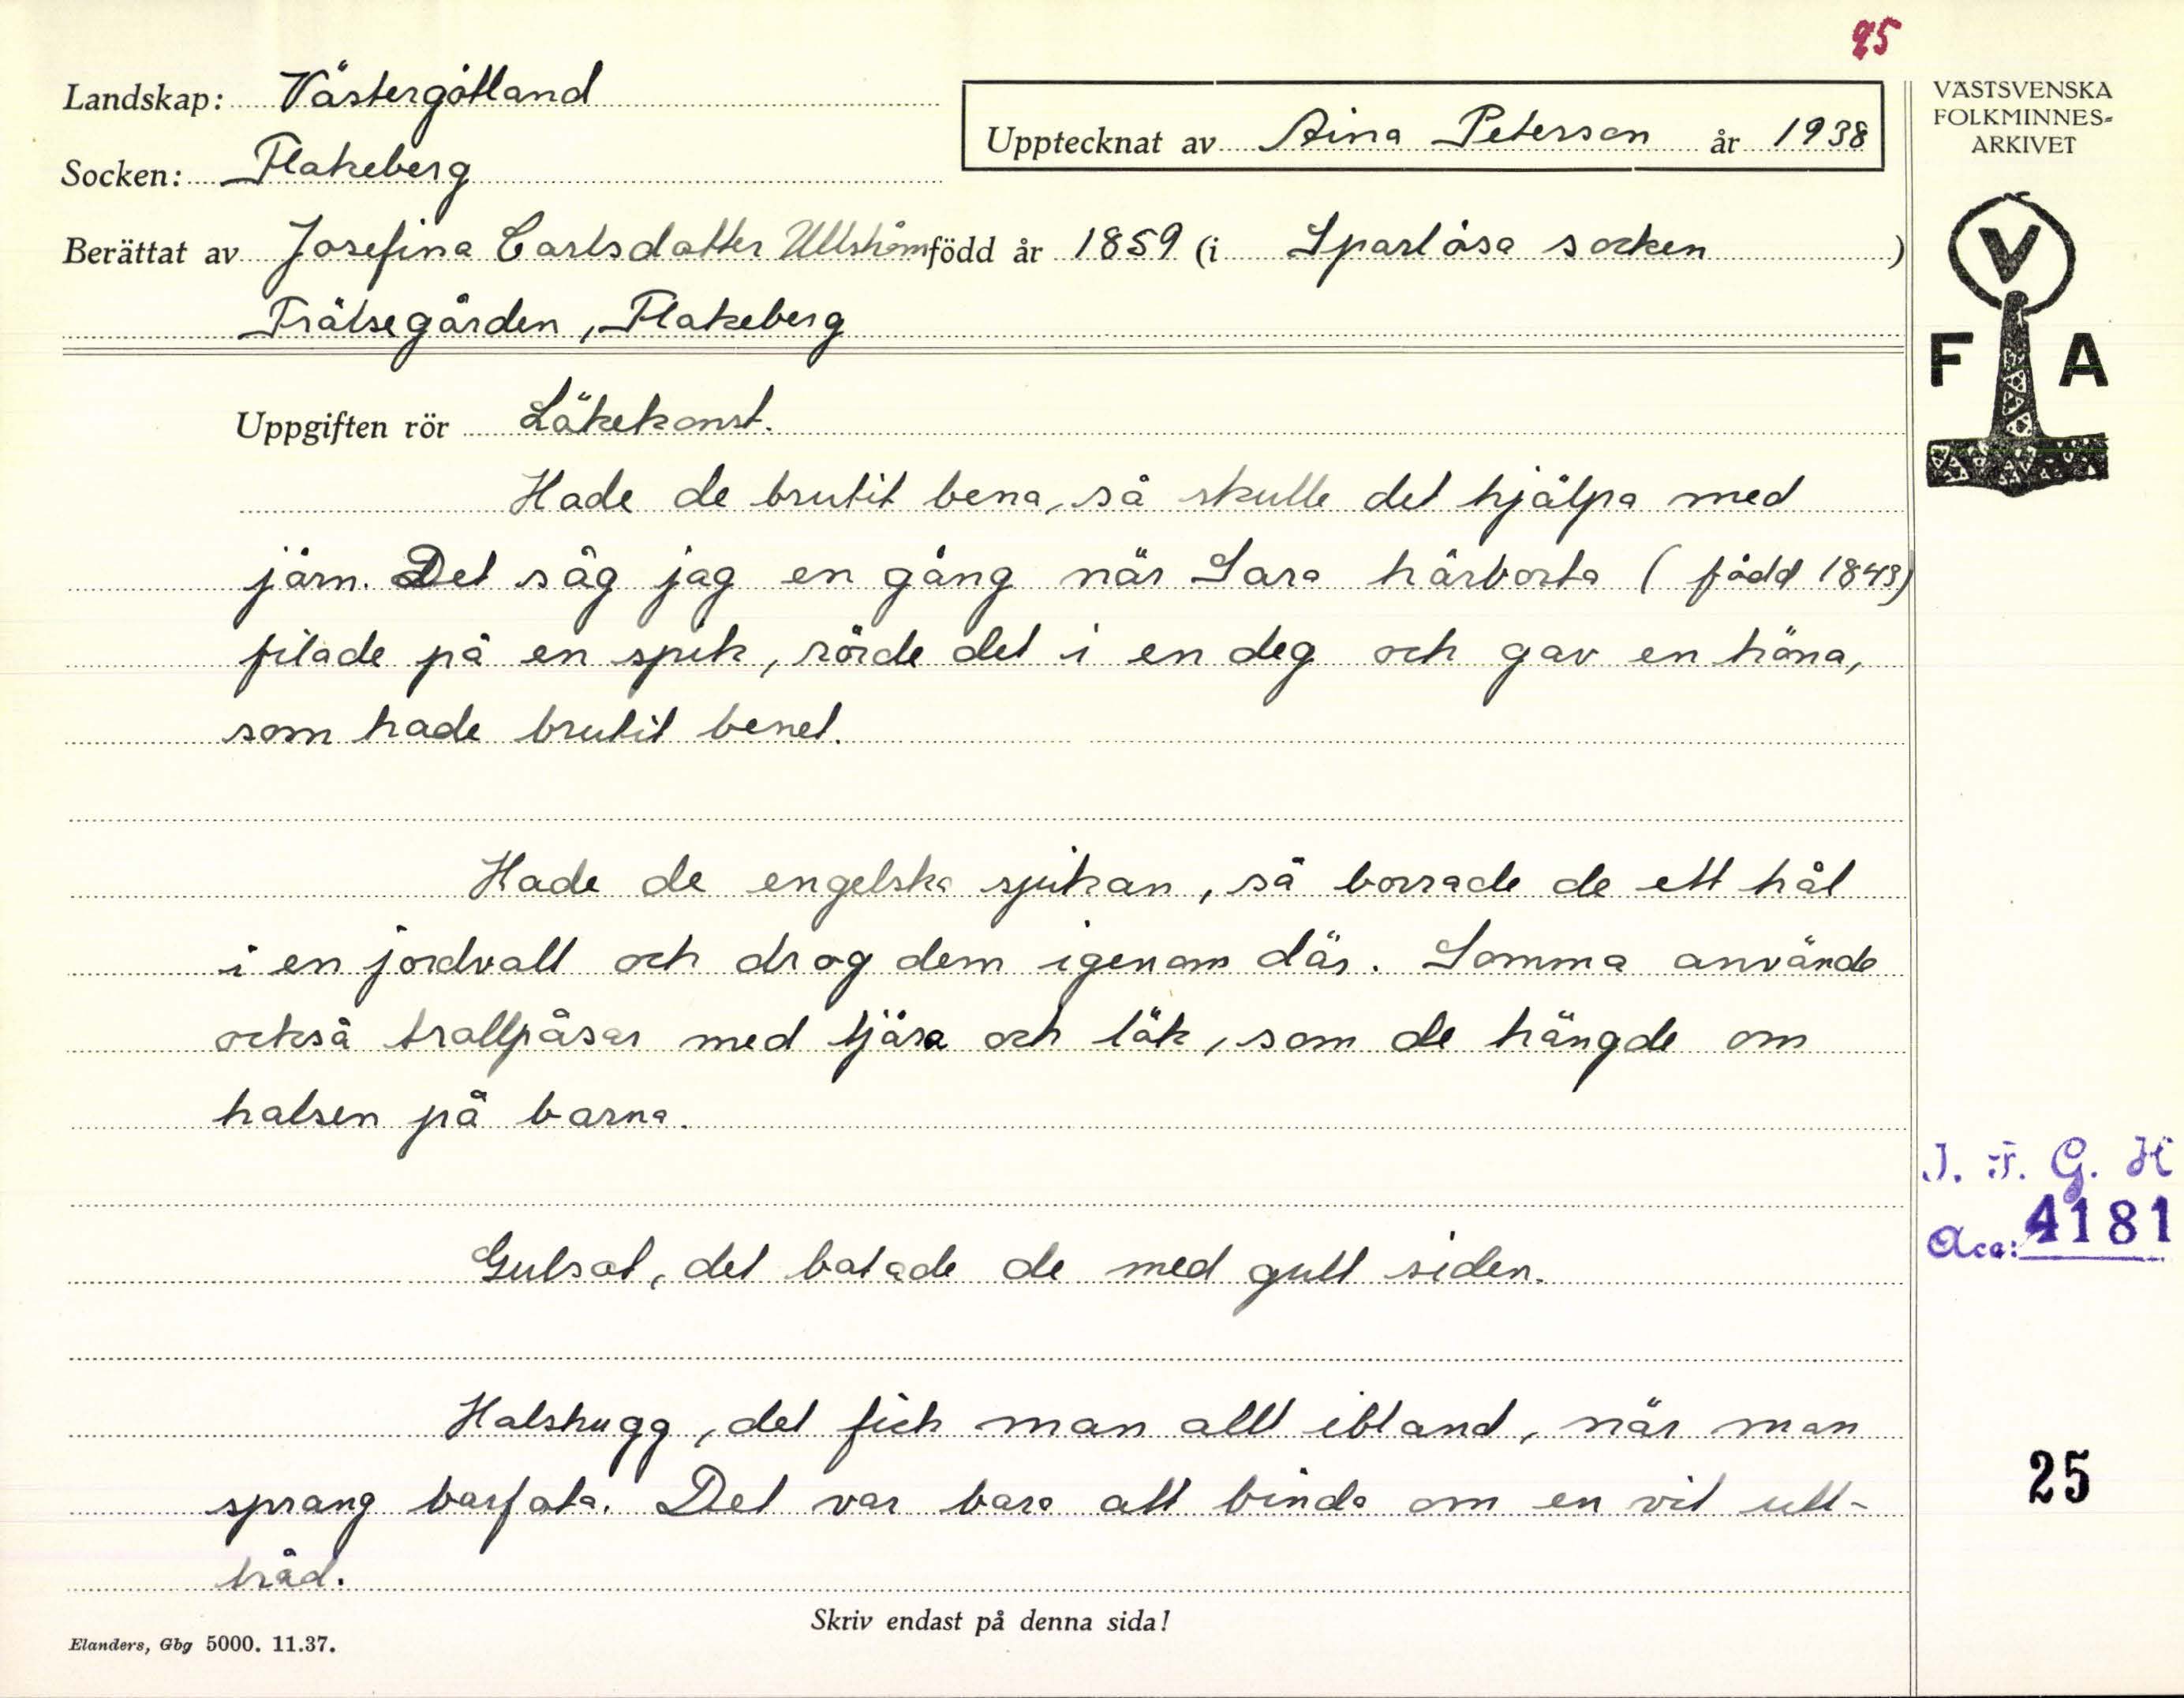 95
Landskap: Västergötland
Socken: Flakeberg
Upptecknat av Aina Peterson år 1938
Berättat av Josefina Carlsdotter Ullström född år 1859 (i Sparlösa socken )
Frälsegården, Flakeberg
VÄSTSVENSKA
FOLKMINNES-
ARKIVET
V
F A
Uppgiften rör Läkekonst.
Hade de brutit bena, så skulle det hjälpa med
järn. Det såg jag en gång när Sara härborta (född 1843)
filade på en spik, rörde det i en deg och gav en höna,
som hade brutit benet.
Hade de engelska sjukan, så borrade de ett hål
i en jordvall och drog dem igenom där. Somma använde
också trollpåsar med tjära och lök, som de hängde om
halsen på barna.
Gulsot, det botade de med gult siden.
Halshugg, det fick man allt ibland, när man
sprang barfota. Det var bara att binda om en vit ull-
tråd.
I. F. G. H
Acc: 4181
25
Skriv endast på denna sida!
Elanders, Gbg 5000. 11.37.